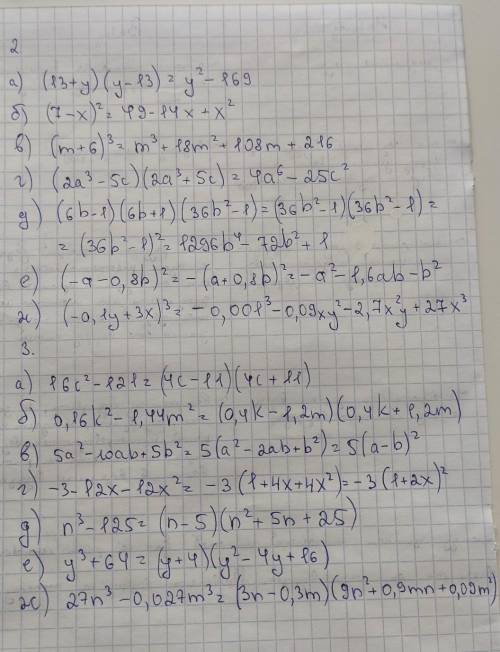 2
а) (13+y)(y-13) = y² - 169
б) (7-x)² = 49-14x+x²
в) (m+6)³ = m³+18m²+108m+216
г) (2a³-5c)(2a³+5c) = 4a⁶-25c²
д) (6b-1)(6b+1)(36b²-1) = (36b²-1)(36b²-1) =
= (36b²-1)² = 1296b⁴-72b²+1
е) (-a-0,8b)² = -(a+0,8b)² = -a²-1,6ab-b²
ж) (-0,1y+3x)³ = -0,001³-0,09xy²-2,7x²y+27x³
3.
а) 16c²-121 = (4c-11)(4c+11)
б) 0,16k²-1,44m² = (0,4k-1,2m)(0,4k+1,2m)
в) 5a²-10ab+5b² = 5(a²-2ab+b²) = 5(a-b)²
г) -3-12x-12x² = -3(1+4x+4x²) = -3(1+2x)²
д) n³-125 = (n-5)(n²+5n+25)
е) y³+64 = (y+4)(y²-4y+16)
ж) 27n³-0,027m³ = (3n-0,3m)(9n²+0,9mn+0,09m²)